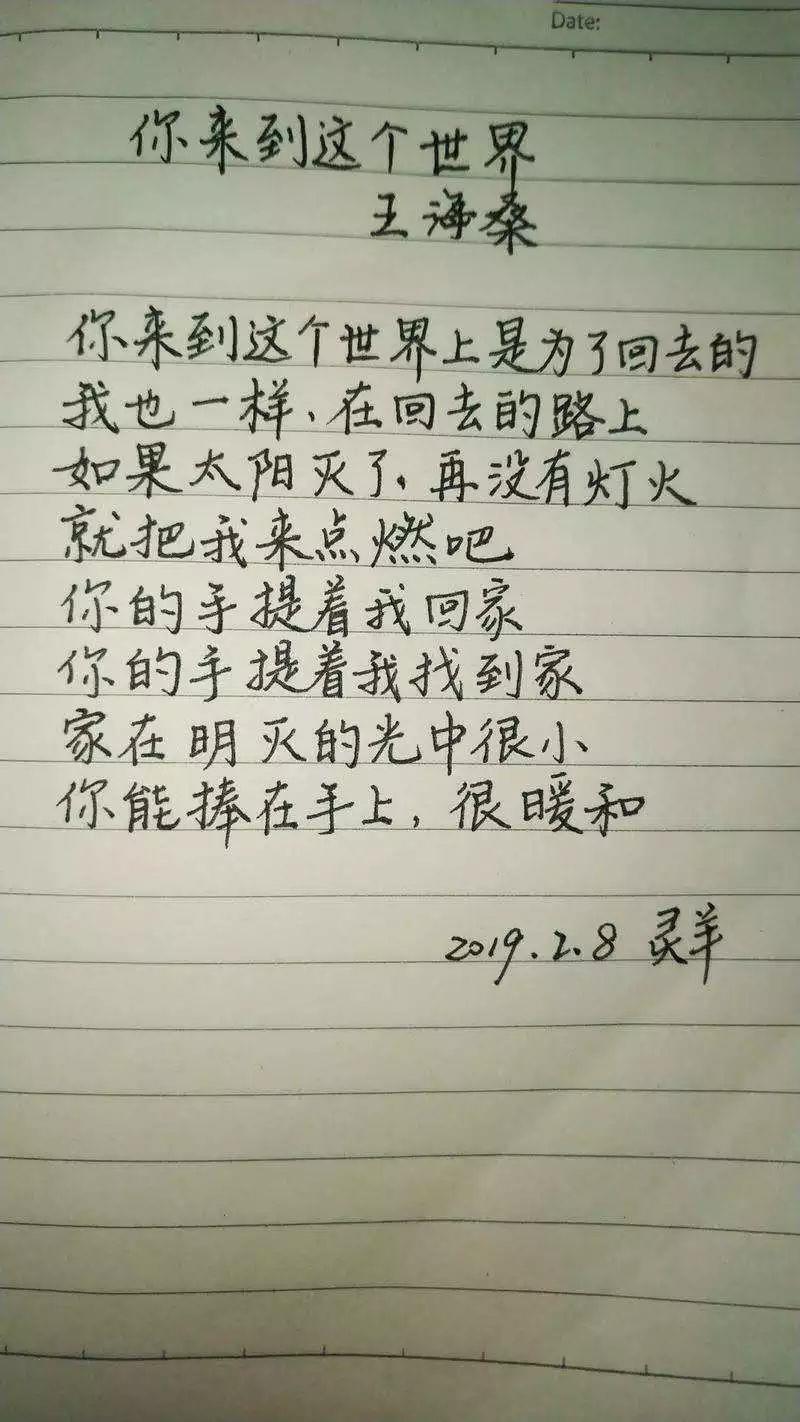 Date:
你来到这个世界
王海桑
你来到这个世界上是为了回去的
我也一样、在回去的路上
如果太阳灭了、再没有灯火
就把我来点燃吧
你的手提着我回家
你的手提着我找到家
家在明灭的光中很小
你能捧在手上，很暖和
2019.2.8 灵羊